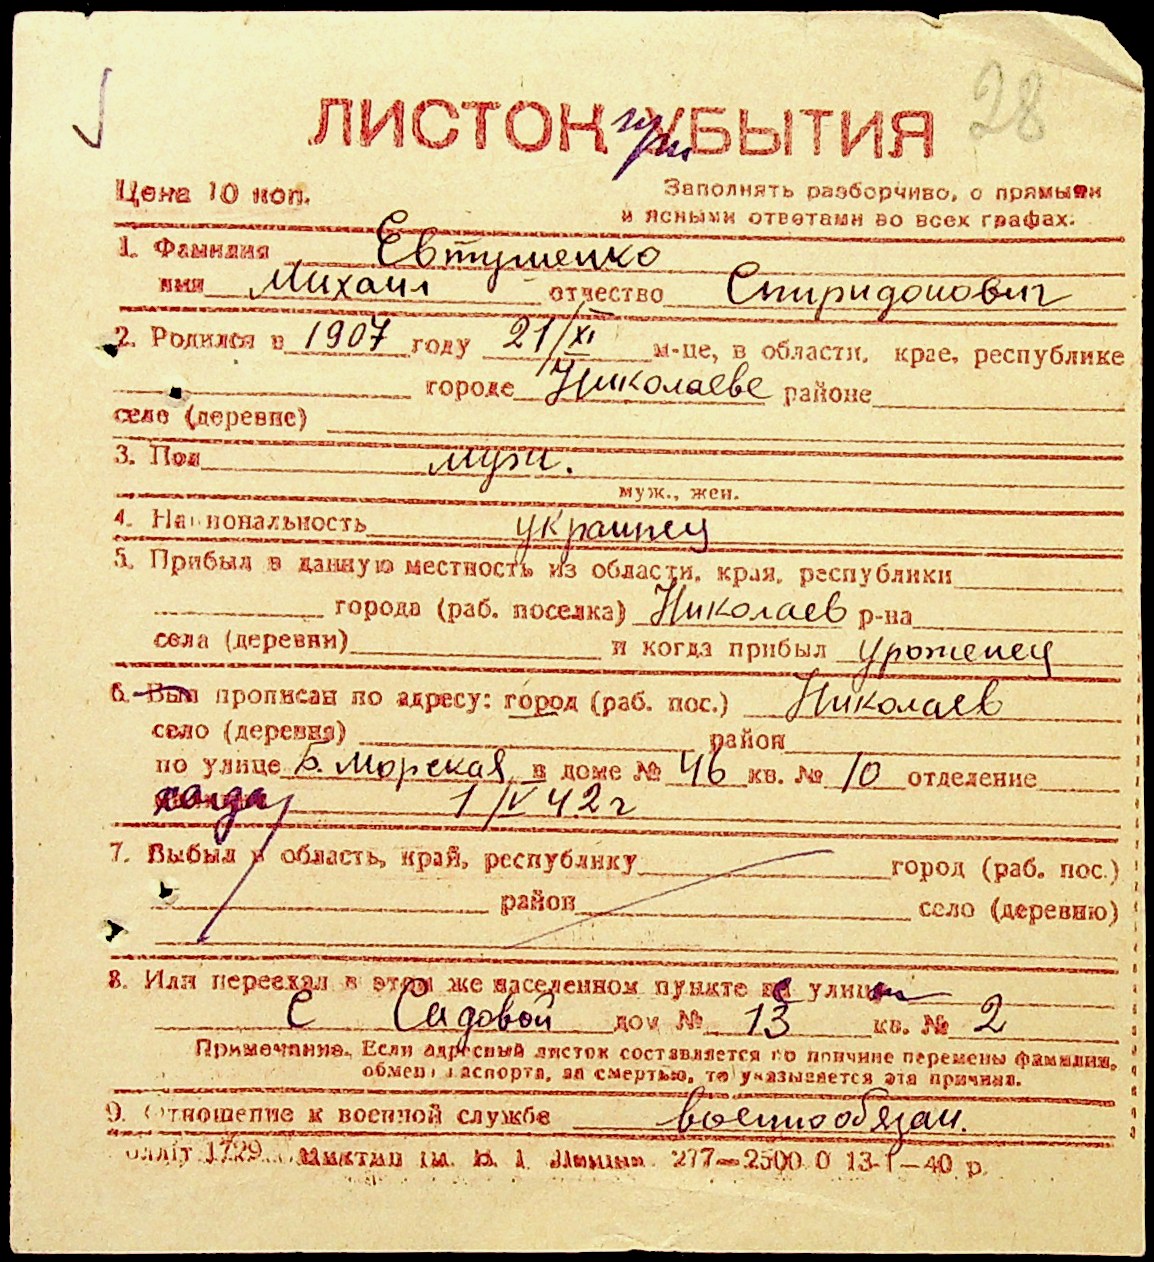 28
ЛИСТОК при УБЫТИЯ
Цена 10 коп.
Заполнять разборчиво, с прямыми
и ясными ответами во всех графах.
1. Фамилия Евтушенко
имя Михаил отчество Спиридонович
2. Родился в 1907 году 21/XI м-це, в области, крае, республике
городе Николаеве районе
село (деревне)
3. Пол муж.
муж., жен.
4. Национальность украинец
5. Прибыл в данную местность из области, края, республики
города (раб. поселка) Николаев р-на
села (деревни) и когда прибыл уроженец
6. Был прописан по адресу: город (раб. пос.) Николаев
село (деревня) район
по улице Б. Морская в доме № 46 кв. № 10 отделение
когда 1/V 42 г
7. Выбыл в область, край, республику город (раб. пос.)
район село (деревню)
8. Или переехал в этом же населенном пункте с улицы
с Садовой дом № 13 кв. № 2
Примечание. Если адресный листок составляется по причине перемены фамилии,
обмена паспорта, за смертью, то указывается эта причина.
9. Отношение к военной службе военнообязан.
1729. 277—2500.0 13-I—40 р.